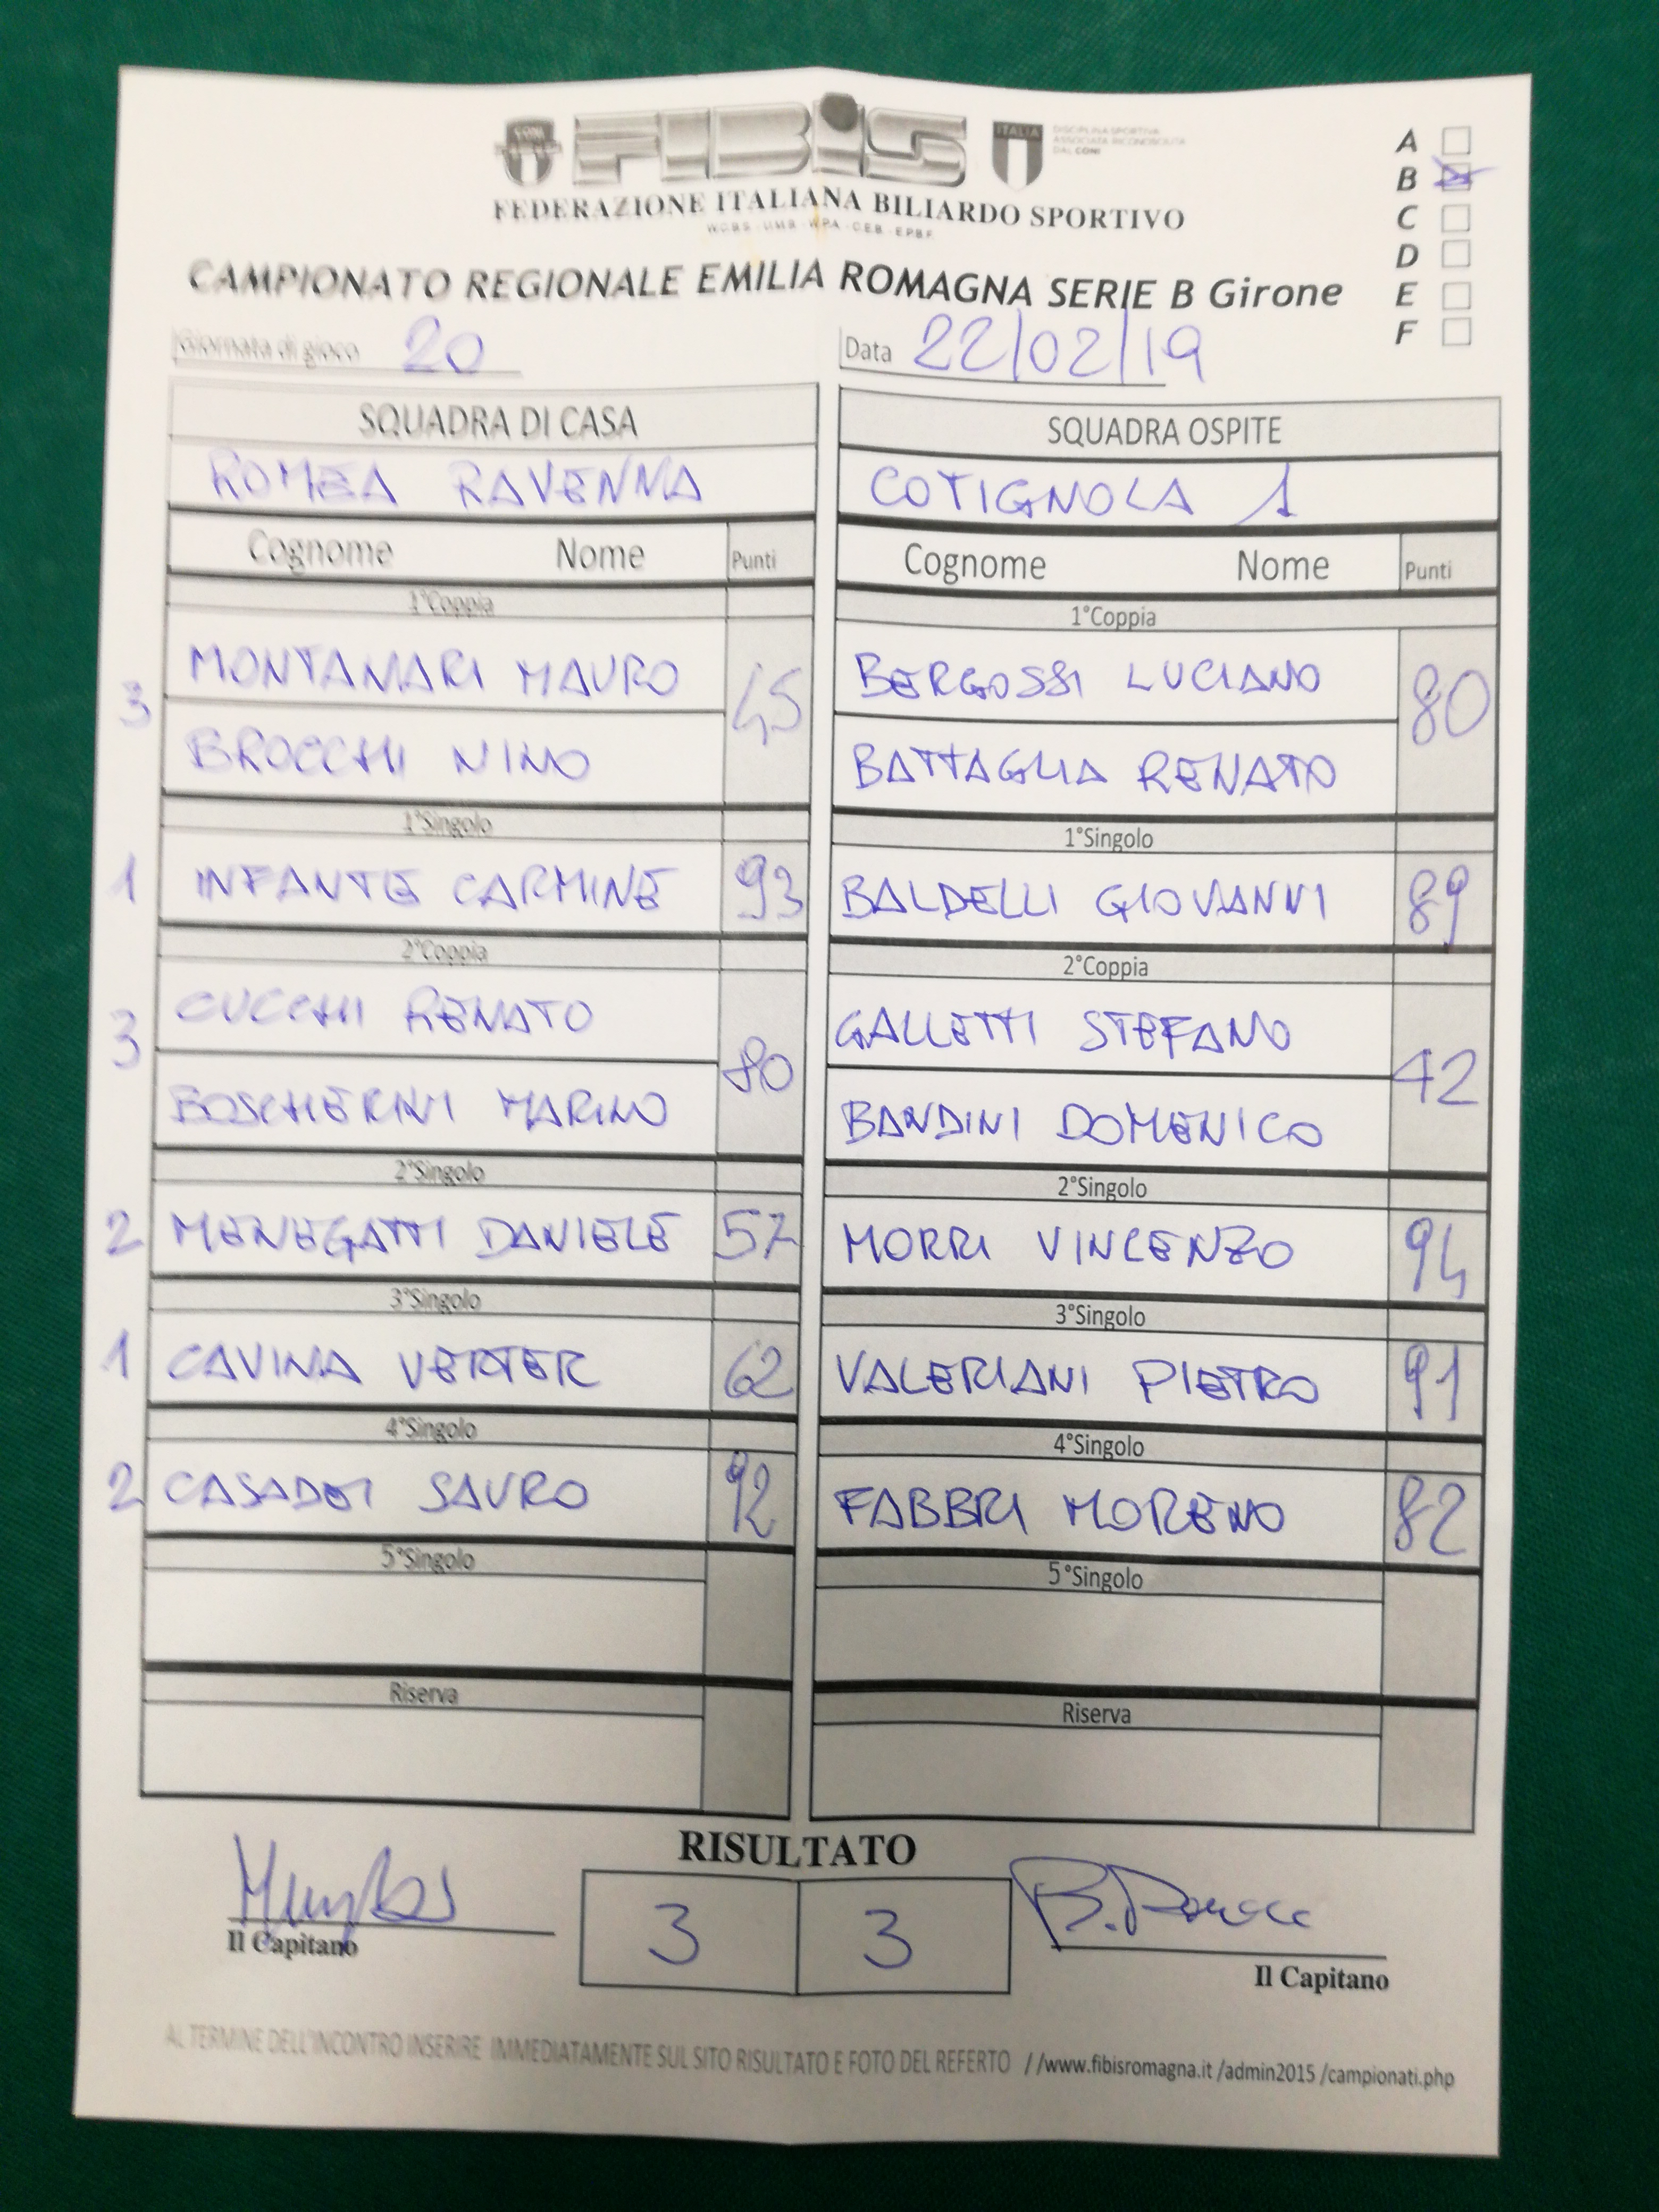 CONI
FIBIS
ITALIA
DISCIPLINA SPORTIVA
ASSOCIATA RICONOSCIUTA
DAL CONI
FEDERAZIONE ITALIANA BILIARDO SPORTIVO
WCBS - UMB - WPA - CEB - EPBF
CAMPIONATO REGIONALE EMILIA ROMAGNA SERIE B Girone
A
B
C
D
E
F
Giornata di gioco 20
Data 22/02/19
SQUADRA DI CASA
ROMEA RAVENNA
Cognome Nome Punti
1°Coppia
3 MONTANARI MAURO 45
BROCCHI NINO
1°Singolo
1 INFANTE CARMINE 93
2°Coppia
3 CUCCHI RENATO 80
BOSCHERINI MARINO
2°Singolo
2 MENEGATTI DANIELE 57
3°Singolo
1 CAVINA VERTER 62
4°Singolo
2 CASADEI SAURO 92
5°Singolo
Riserva
SQUADRA OSPITE
COTIGNOLA 1
Cognome Nome Punti
1°Coppia
BERGOSSI LUCIANO 80
BATTAGLIA RENATO
1°Singolo
BALDELLI GIOVANNI 89
2°Coppia
GALLETTI STEFANO 42
BANDINI DOMENICO
2°Singolo
MORRI VINCENZO 94
3°Singolo
VALERIANI PIETRO 91
4°Singolo
FABBRI MORENO 82
5°Singolo
Riserva
RISULTATO
3 3
Il Capitano
Il Capitano
AL TERMINE DELL'INCONTRO INSERIRE IMMEDIATAMENTE SUL SITO RISULTATO E FOTO DEL REFERTO //www.fibisromagna.it /admin2015 /campionati.php